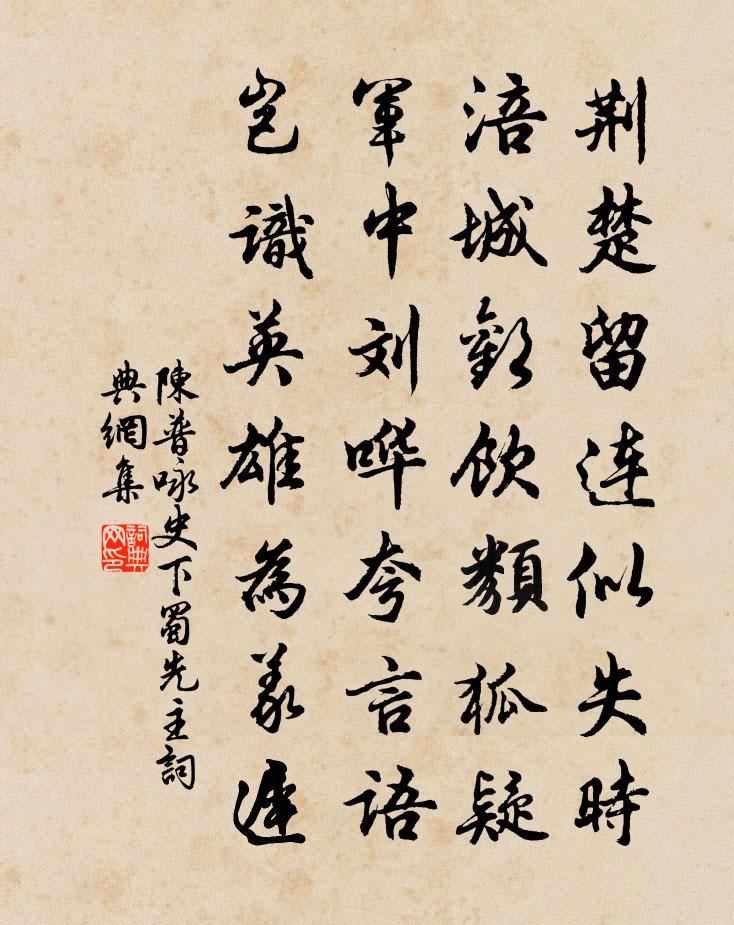 荆楚留連似失時
涪城歡飲類狐疑
軍中刘哗夸言語
豈識英雄為義遲
陳普咏史下蜀先主詞
典網集
詞典
网印